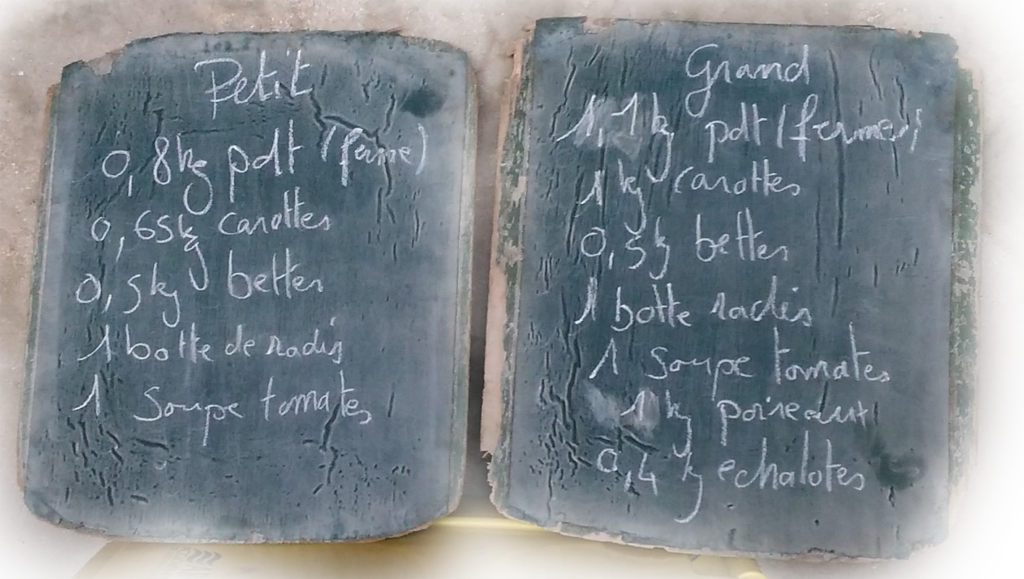 Petit
0,8kg pdt (ferme)
0,65kg carottes
0,5kg bettes
1 botte de radis
1 Soupe tomates
Grand
1,1kg pdt (fermes)
1kg carottes
0,5kg bettes
1 botte radis
1 Soupe tomates
1kg poireaux
0,4 kg echalotes